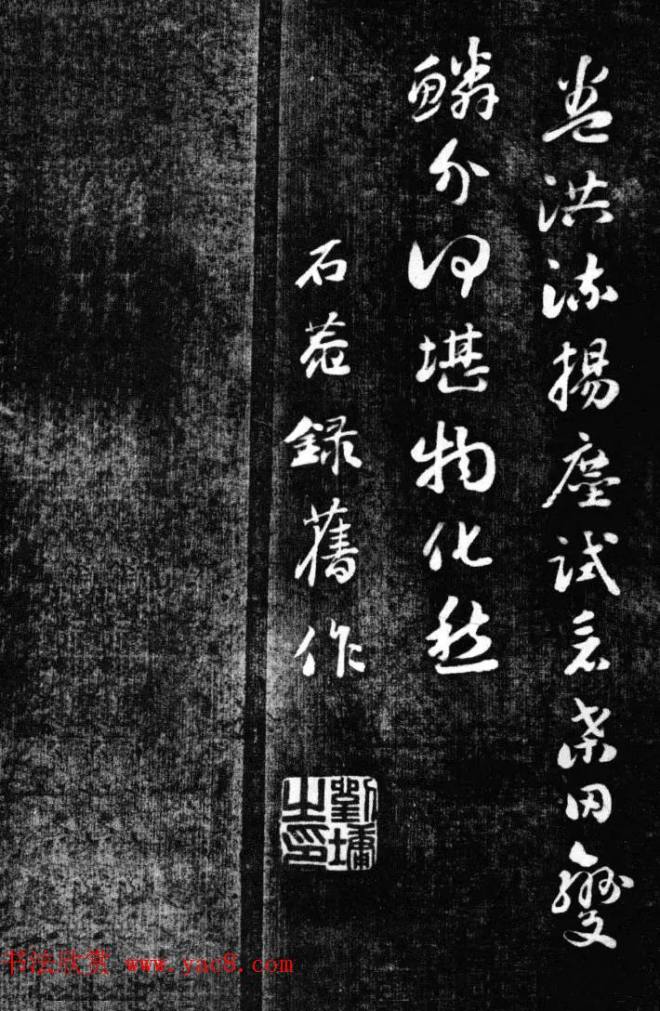 卷洪流揚塵試桑田變
鱗介何堪物化愁
石菴錄舊作
劉墉之印
书法欣赏 www.yac8.com